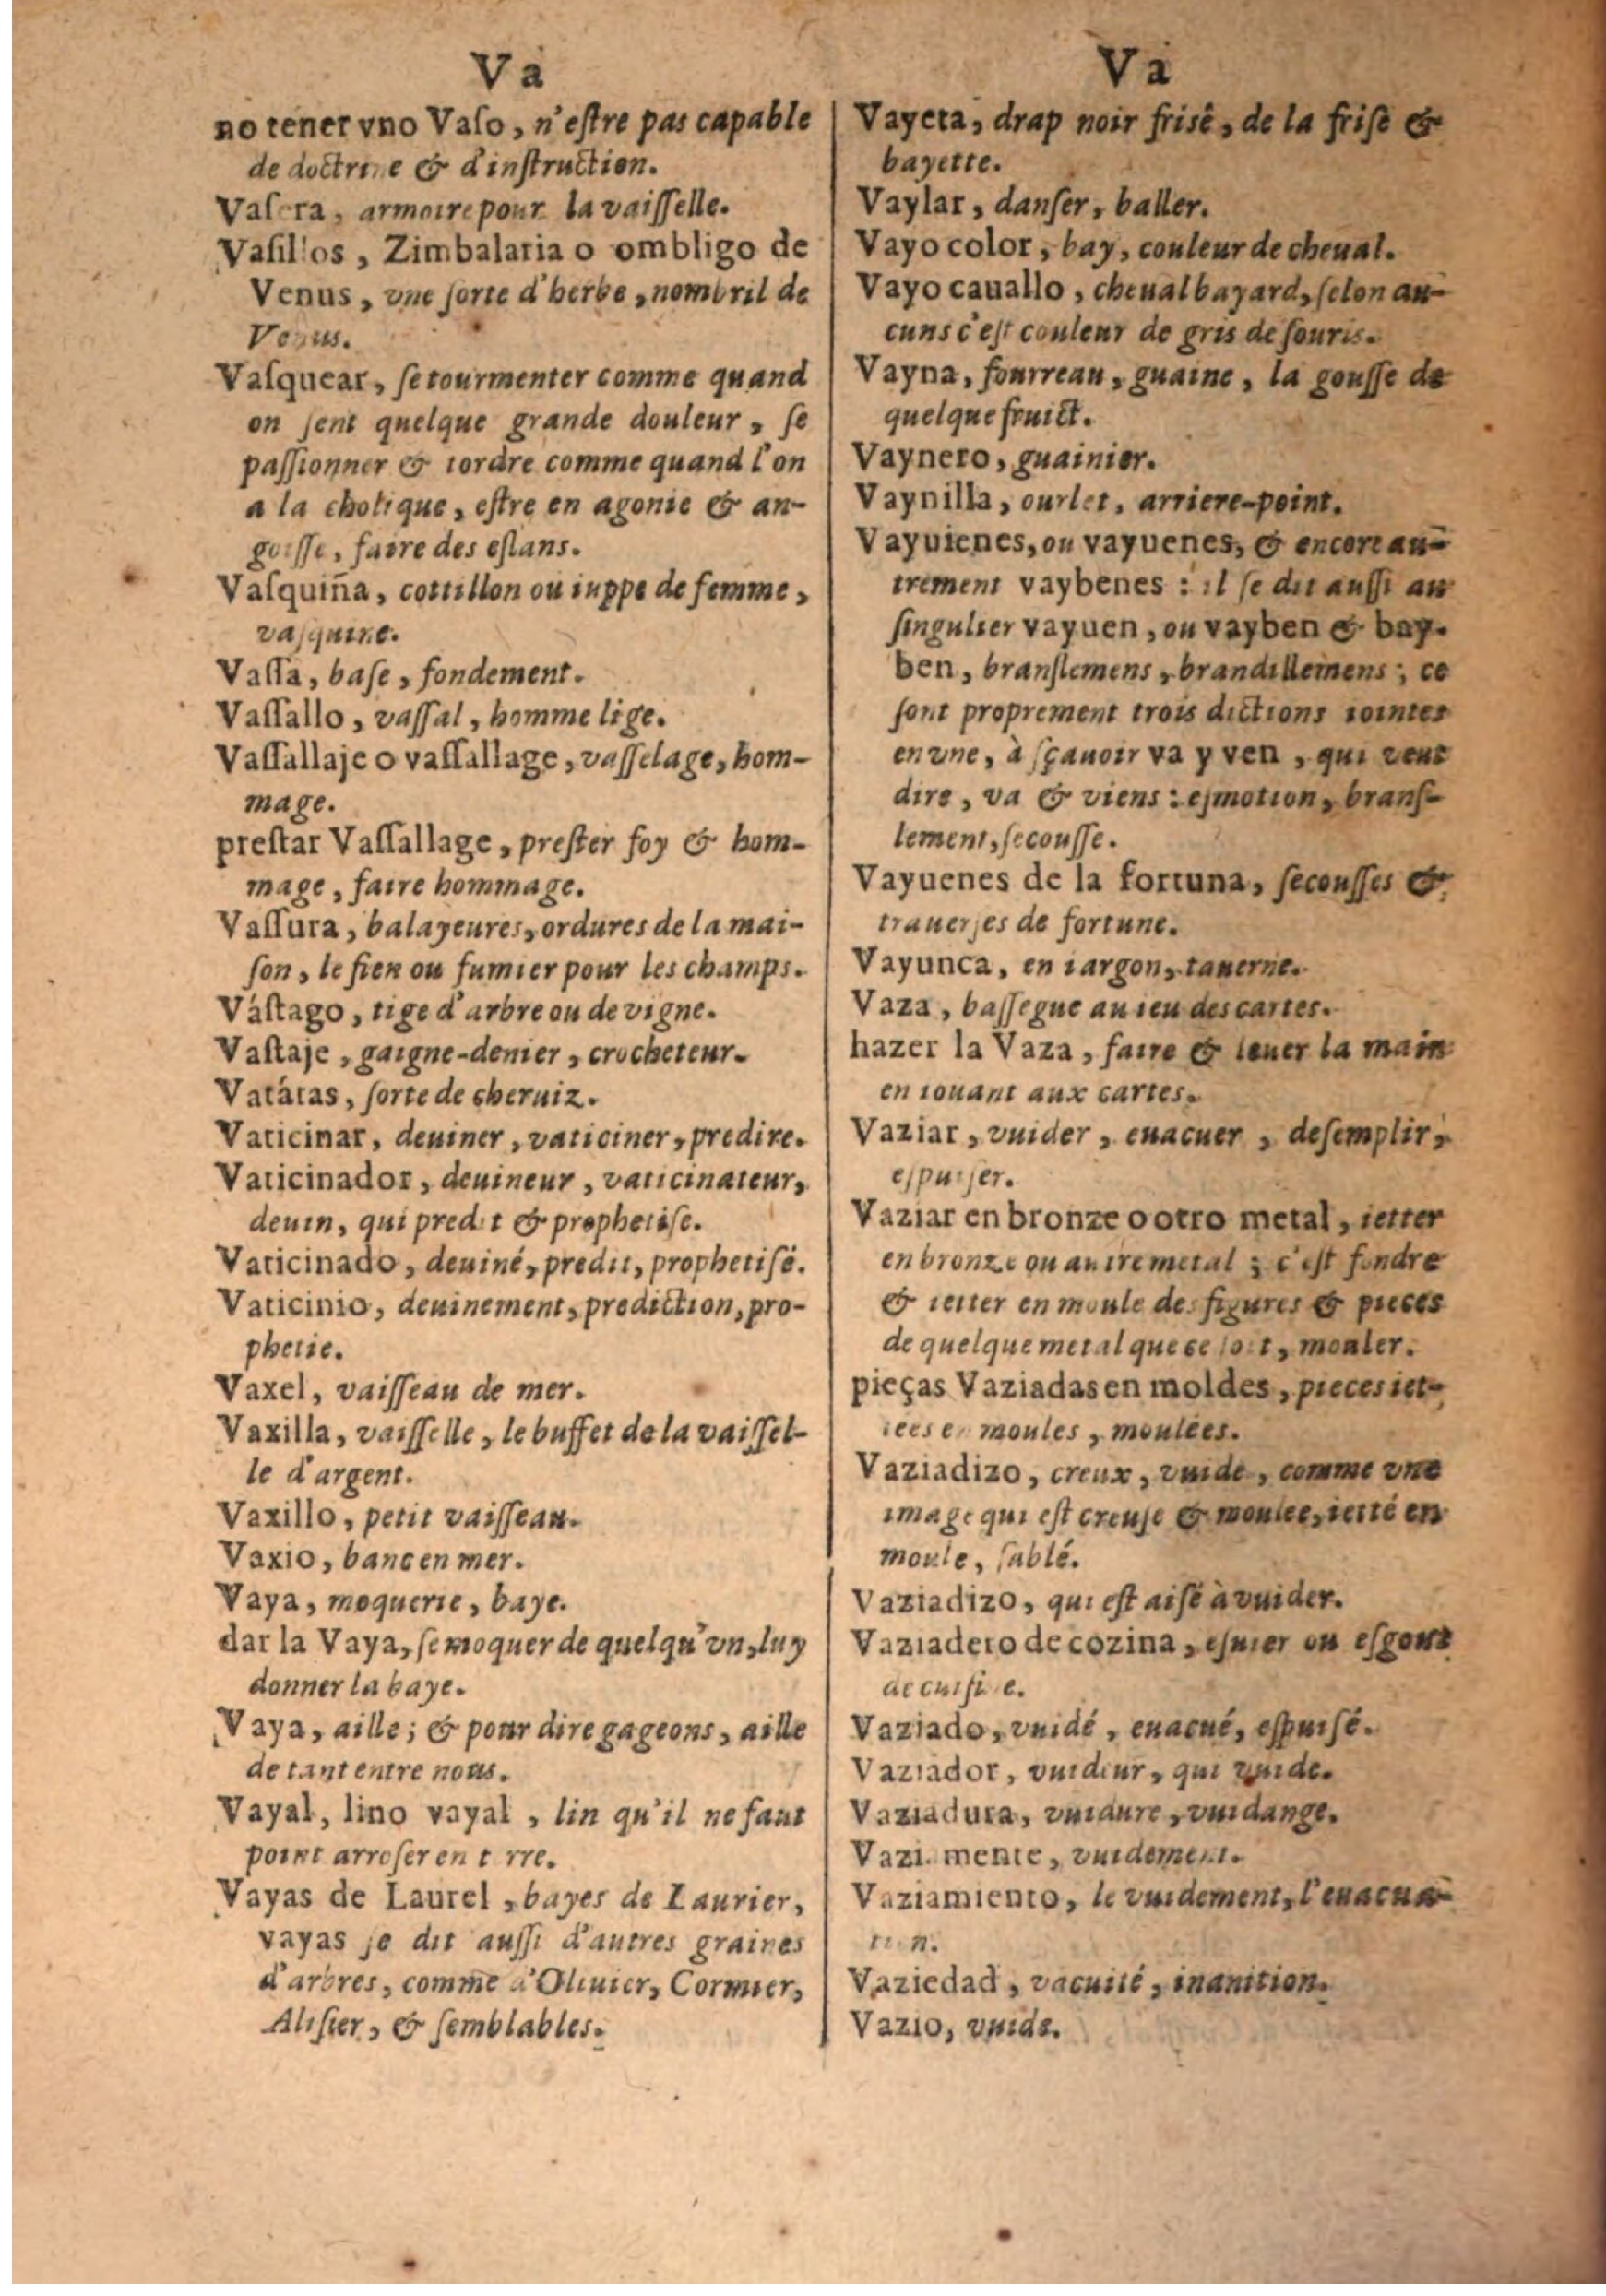 Va
no tener vno Vaſo, n'eſtre pas capable
de doctrine & d'inſtruction.
Vaſera, armoire pour la vaiſſelle.
Vaſillos, Zimbalaria o ombligo de
Venus, vne ſorte d'herbe, nombril de
Venus.
Vaſquear, ſe tourmenter comme quand
on ſent quelque grande douleur, ſe
paſſionner & tordre comme quand l'on
a la cholique, eſtre en agonie & an-
goiſſe, faire des eſlans.
Vaſquiña, cottillon ou iuppe de femme,
vaſquine.
Vaſſa, baſe, fondement.
Vaſſallo, vaſſal, homme lige.
Vaſſallaje o vaſſallage, vaſſelage, hom-
mage.
preſtar Vaſſallage, preſter foy & hom-
mage, faire hommage.
Vaſſura, balayeures, ordures de la mai-
ſon, le fien ou fumier pour les champs.
Váſtago, tige d'arbre ou de vigne.
Vaſtaje, gaigne-denier, crocheteur.
Vatátas, ſorte de cheruiz.
Vaticinar, deuiner, vaticiner, predire.
Vaticinador, deuineur, vaticinateur,
deuin, qui predit & prophetiſe.
Vaticinado, deuiné, predit, prophetiſé.
Vaticinio, deuinement, prediction, pro-
phetie.
Vaxel, vaiſſeau de mer.
Vaxilla, vaiſſelle, le buffet de la vaiſſel-
le d'argent.
Vaxillo, petit vaiſſeau.
Vaxio, banc en mer.
Vaya, moquerie, baye.
dar la Vaya, ſe moquer de quelqu'vn, luy
donner la baye.
Vaya, aille; & pour dire gageons, aille
de tant entre nous.
Vayal, lino vayal, lin qu'il ne faut
point arroſer en terre.
Vayas de Laurel, bayes de Laurier,
vayas ſe dit auſſi d'autres graines
d'arbres, comme d'Oliuier, Cormier,
Aliſier, & ſemblables.
Va
Vayeta, drap noir friſé, de la friſe &
bayette.
Vaylar, danſer, baller.
Vayo color, bay, couleur de cheual.
Vayo cauallo, cheual bayard, ſelon au-
cuns c'eſt couleur de gris de ſouris.
Vayna, fourreau, guaine, la gouſſe de
quelque fruict.
Vaynero, guainier.
Vaynilla, ourlet, arriere-point.
Vayuienes, ou vayuenes, & encore au-
trement vaybenes : il ſe dit auſſi au
ſingulier vayuen, ou vayben & bay-
ben, branſlemens, brandillemens; ce
ſont proprement trois dictions iointes
en vne, à ſçauoir va y ven, qui veut
dire, va & viens : eſmotion, branſ-
lement, ſecouſſe.
Vayuenes de la fortuna, ſecouſſes &
trauerſes de fortune.
Vayunca, en iargon, tauerne.
Vaza, baſſegue au ieu des cartes.
hazer la Vaza, faire & leuer la main
en iouant aux cartes.
Vaziar, vuider, euacuer, deſemplir,
eſpuiſer.
Vaziar en bronze o otro metal, ietter
en bronze ou autre metal; c'eſt fondre
& ietter en moule des figures & pieces
de quelque metal que ce ſoit, mouler.
pieças Vaziadas en moldes, pieces iet-
tees en moules, moulées.
Vaziadizo, creux, vuide, comme vne
image qui eſt creuſe & moulee, ietté en
moule, ſablé.
Vaziadizo, qui eſt aiſé à vuider.
Vaziadero de cozina, eſuier ou eſgout
de cuiſine.
Vaziado, vuidé, euacué, eſpuiſé.
Vaziador, vuideur, qui vuide.
Vaziadura, vuidure, vuidange.
Vaziamente, vuidement.
Vaziamiento, le vuidement, l'euacua-
tion.
Vaziedad, vacuité, inanition.
Vazio, vuide.